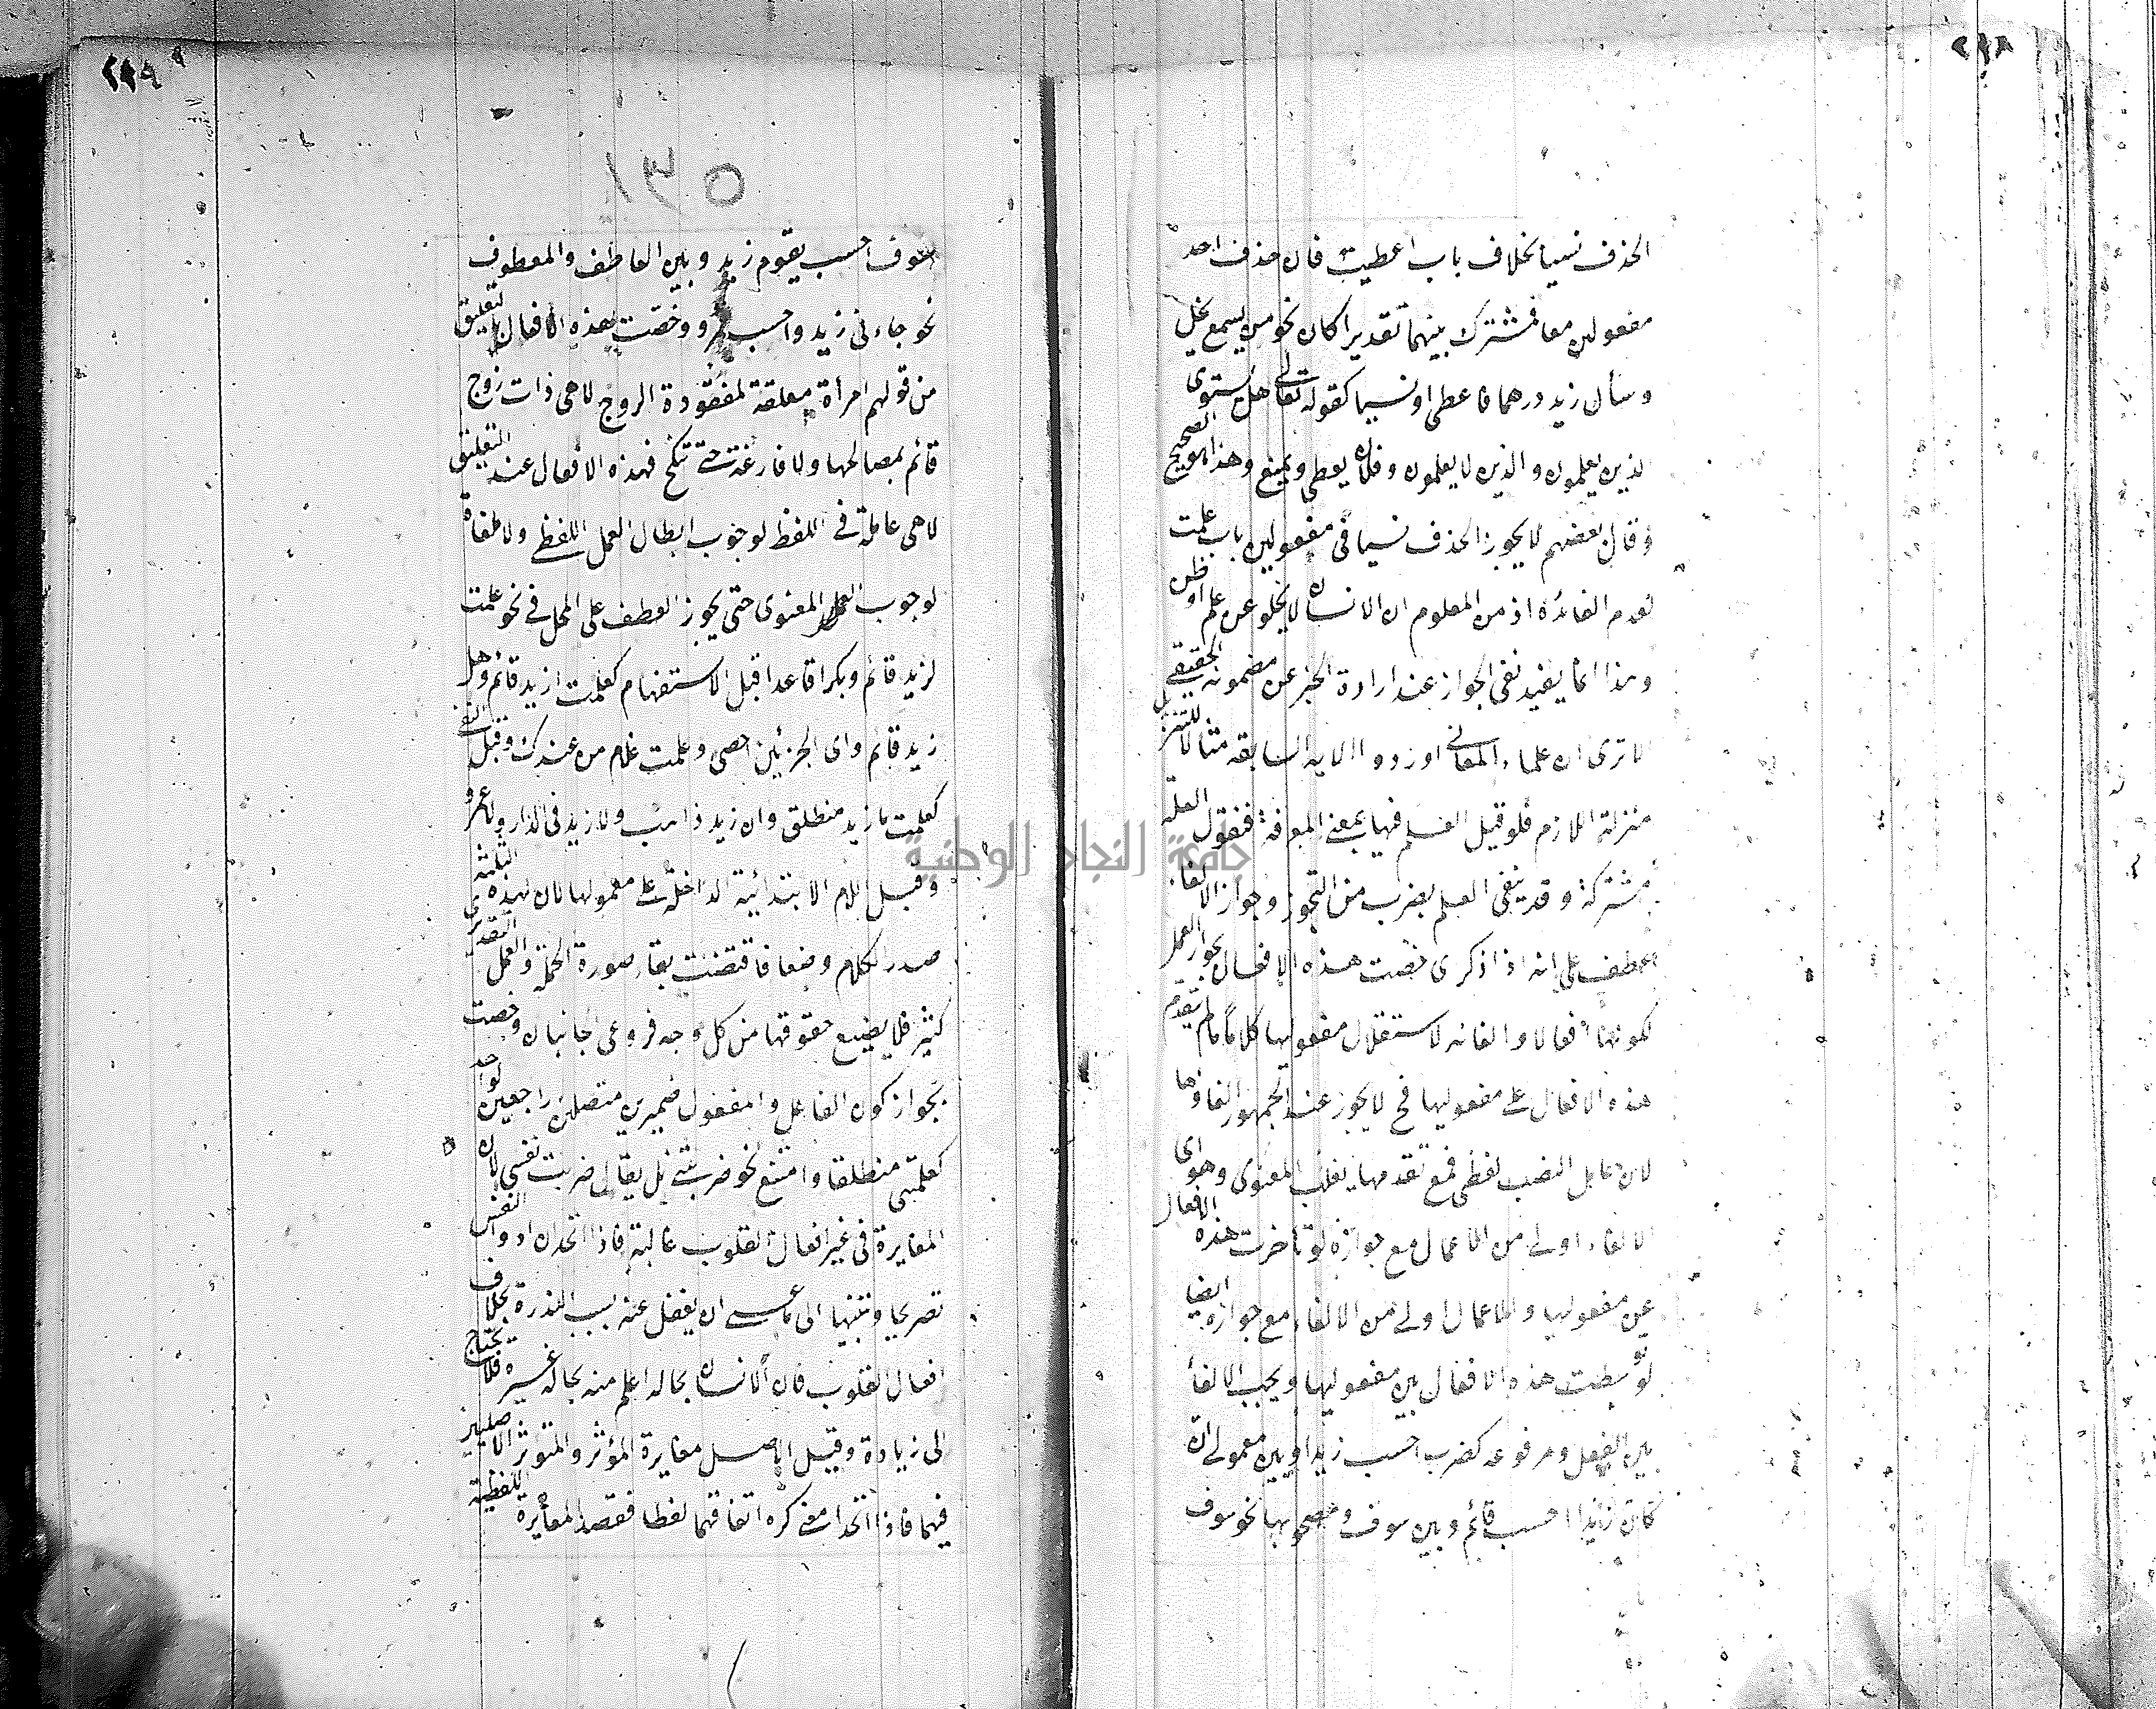 ٢٩٨
الحذف نسيا بخلاف باب اعطيت فان حذف احد
مفعوليه معا فمشترك بينهما تقديرا كان نحو من يسمع يخل
وسأل زيد درهما فاعطى او نسيا كقوله تعالى هل يستوى
الذين يعلمون والذين لا يعلمون وفلان يعطى ويمنع وهذا هو الصحيح
وقال بعضهم لا يجوز الحذف نسيا فى مفعولين باب علمت
لعدم الفائدة اذ من المعلوم ان الانسان لا يخلو عن علم او ظن
وهذا انما يفيد نفى الجواز عند ارادة الخبر عن مضمونه الحقيقى بل
الا ترى ان علماء المعانى اوردوا الاية السابقة مثالا للتنزل
منزلة اللازم فلو قيل العلم فيها بمعنى المعرفة فنقول العلة
مشتركة وقد ينفى العلم بضرب من التجوز وجواز الالغاء
عطف على انه اذا ذكرى خصت هذه الافعال بجواز العمل
لكونها افعالا والغائه لاستقلال مفعوليها كلاما ما لم يتقدم
هذه الافعال على مفعوليها فح لا يجوز عند الجمهور الغاؤها
لان عامل النصب لفظى فمع تقدمها يغلب المعنوى وهو اى
الالغاء اولى من الاعمال مع جوازه لو تأخرت هذه الافعال
عن مفعوليها والاعمال اولى من الالغاء مع جوازه ايضا
لو توسطت هذه الافعال بين مفعوليها ويجب الالغاء
بين الفعل ومرفوعه كضرب احسب زيد او بين معمولى ان
كان زيدا احسب قائم وبين سوف ومصحوبها نحو سوف
٢٩٩
١٣٥
سوف احسب يقوم زيد وبين العاطف والمعطوف
نحو جاءنى زيد واحسب عمرو وخصت هذه الافعال بتعليق
من قولهم امرأة معلقة لمفقودة الزوج لا هى ذات زوج
قائم بمصالحها ولا فارغة حتى تنكح فهذه الافعال عند التعليق
لا هى عاملة فى اللفظ لوجوب ابطال العمل اللفظى ولا ملغاة
لوجوب العمل المعنوى حتى يجوز العطف على المحل فى نحو علمت
لزيد قائم وبكرا قاعدا قبل الاستفهام كعلمت ازيد قائم وهل
زيد قائم واى الجزئين احصى وعلمت غلام من عندك وقبل النفى
كعلمت ما زيد منطلق وان زيد ذاهب ولا زيد فى الدار ولا عمرو
وقبل اللام الابتدائية الداخلة على معمولها لان لهذه الثلثة
صدر الكلام وضعا فاقتضت بقاء صورة الجملة والعمل التقديرى
كثير فلا يضيع حقوقها من كل وجه فروعى الجانبان وخصت
بجواز كون الفاعل والمفعول ضميرين متصلين راجعين لواحد
كعلمتنى منطلقا وامتنع نحو ضربتنى بل يقال ضربت نفسى لان
المغايرة فى غير افعال القلوب غالبة فاذا اتحدا اوردوا النفس
تصريحا وتنبيها الى ما عسى ان يغفل عنه بسبب الندرة بخلاف
افعال القلوب فان الانسان بحاله اعلم منه بحال غيره فلا يحتاج
الى زيادة وقيل الاصل مغايرة المؤثر والمتوثر الاصليين
فيهما فاذا اتحدا معنى كره اتفاقهما لفظا فقصد المغايرة اللفظية
جامعة النجاح الوطنية